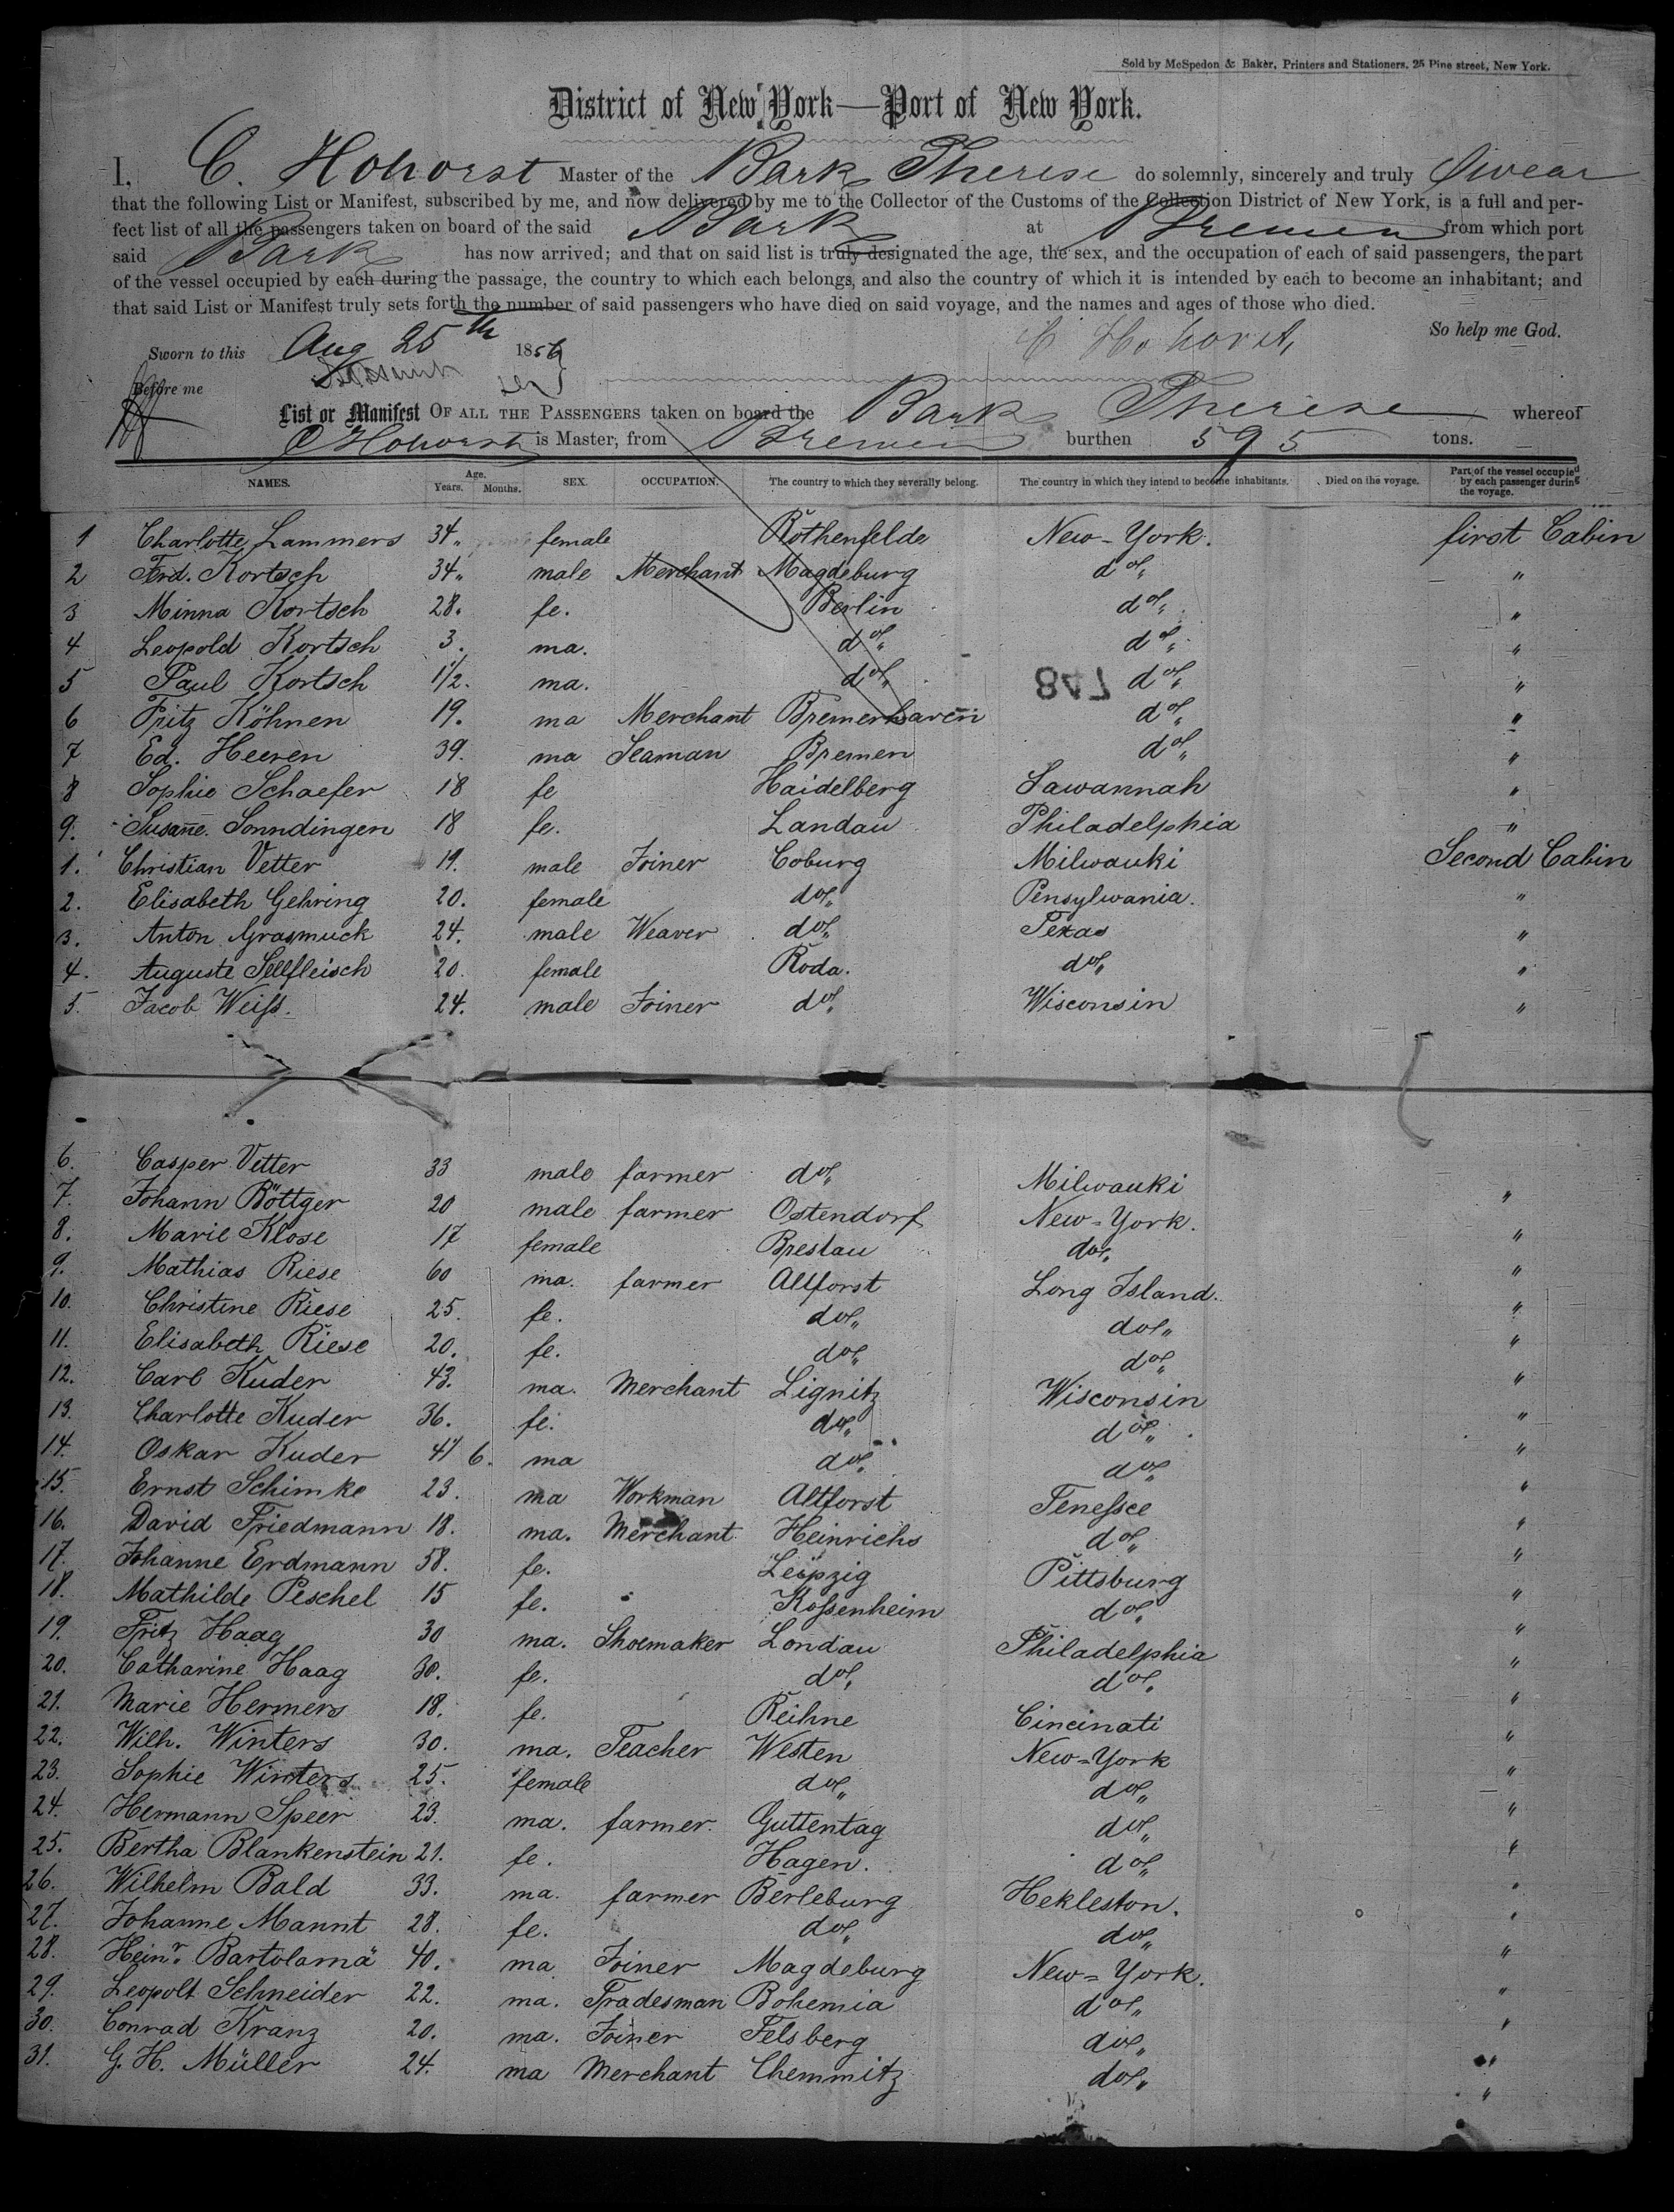 Sold by McSpedon & Baker, Printers and Stationers, 25 Pine street, New York.
District of New York—Port of New York.
I, C. Hohorst Master of the Bark Therese do solemnly, sincerely and truly Swear
that the following List or Manifest, subscribed by me, and now delivered by me to the Collector of the Customs of the Collection District of New York, is a full and per-
fect list of all the passengers taken on board of the said Bark at Bremen from which port
said Bark has now arrived; and that on said list is truly designated the age, the sex, and the occupation of each of said passengers, the part
of the vessel occupied by each during the passage, the country to which each belongs, and also the country of which it is intended by each to become an inhabitant; and
that said List or Manifest truly sets forth the number of said passengers who have died on said voyage, and the names and ages of those who died.
So help me God.
Sworn to this Aug 25th 1856 C Hohorst,
Before me
List or Manifest OF ALL THE PASSENGERS taken on board the Bark Therese whereof
C Hohorst is Master, from Bremen burthen 595 tons.
NAMES. Age. Years. Months. SEX. OCCUPATION. The country to which they severally belong. The country in which they intend to become inhabitants. Died on the voyage. Part of the vessel occupied by each passenger during the voyage.
1 Charlotte Lammers 34 „ female Rothenfelde New-York. first Cabin
2 Ferd. Kortsch 34 „ male Merchant Magdeburg do „ „
3 Minna Kortsch 28. fe. Berlin do „ „
4 Leopold Kortsch 3. ma. do „ do „ „
5 Paul Kortsch 1/2. ma. do „ 847 do „ „
6 Fritz Köhnen 19. ma Merchant Bremerhaven do „ „
7 Ed. Heeren 39. ma Seaman Bremen do „ „
8 Sophie Schaefer 18 fe Haidelberg Sawannah „
9. Susañe Sonndingen 18 fe. Landau Philadelphia „
1. Christian Vetter 19. male Joiner Coburg Milwauki Second Cabin
2. Elisabeth Gehring 20. female do „ Pensylwania. „
3. Anton Grasmuck 24. male Weaver do „ Texas „
4. Auguste Sellfleisch 20. female Roda. do „ „
5. Jacob Weiſs. 24. male Joiner do „ Wisconsin „
6. Casper Vetter 33 male farmer do „ Milwauki „
7. Johann Böttger 20 male farmer Ostendorf New-York. „
8. Marie Klose 17 female Breslau do „ „
9. Mathias Riese 60 ma. farmer Altforst Long Island. „
10. Christine Riese 25. fe. do „ do „ „
11. Elisabeth Riese 20. fe. do „ do „ „
12. Carl Kuder 43. ma. Merchant Lignitz Wisconsin „
13. Charlotte Kuder 36. fe. do „ do „ „
14. Oskar Kuder 6. ma do „ do „ „
15. Ernst Schimke 23. ma Workman Altforst Teneſsee „
16. David Friedmann 18. ma. Merchant Heinrichs do „ „
17. Johanne Erdmann 58. fe. Leipzig Pittsburg „
18. Mathilde Peschel 15 fe. Koſsenheim do „ „
19. Fritz Haag 30 ma. Shoemaker Londau Philadelphia „
20. Catharine Haag 30. fe. do „ do „ „
21. Marie Hermers 18. fe. Reihne Cincinati „
22. Wilh. Winters 30. ma. Teacher Westen New-York „
23. Sophie Winters 25. female do „ do „ „
24. Hermann Speer 23. ma. farmer. Guttentag do „ „
25. Bertha Blankenstein 21. fe. Hagen. do „ „
26. Wilhelm Bald 33. ma. farmer Berleburg Hekleston. „
27. Johanne Mannt 28. fe. do „ do „ „
28. Heinr. Bartolamä 40. ma Joiner Magdeburg New-York. „
29. Leopolt Schneider 22. ma. Tradesman Bohemia do „ „
30. Conrad Kranz 20. ma. Joiner Felsberg do „ „
31. G. H. Müller 24. ma Merchant Chemmitz do „ „